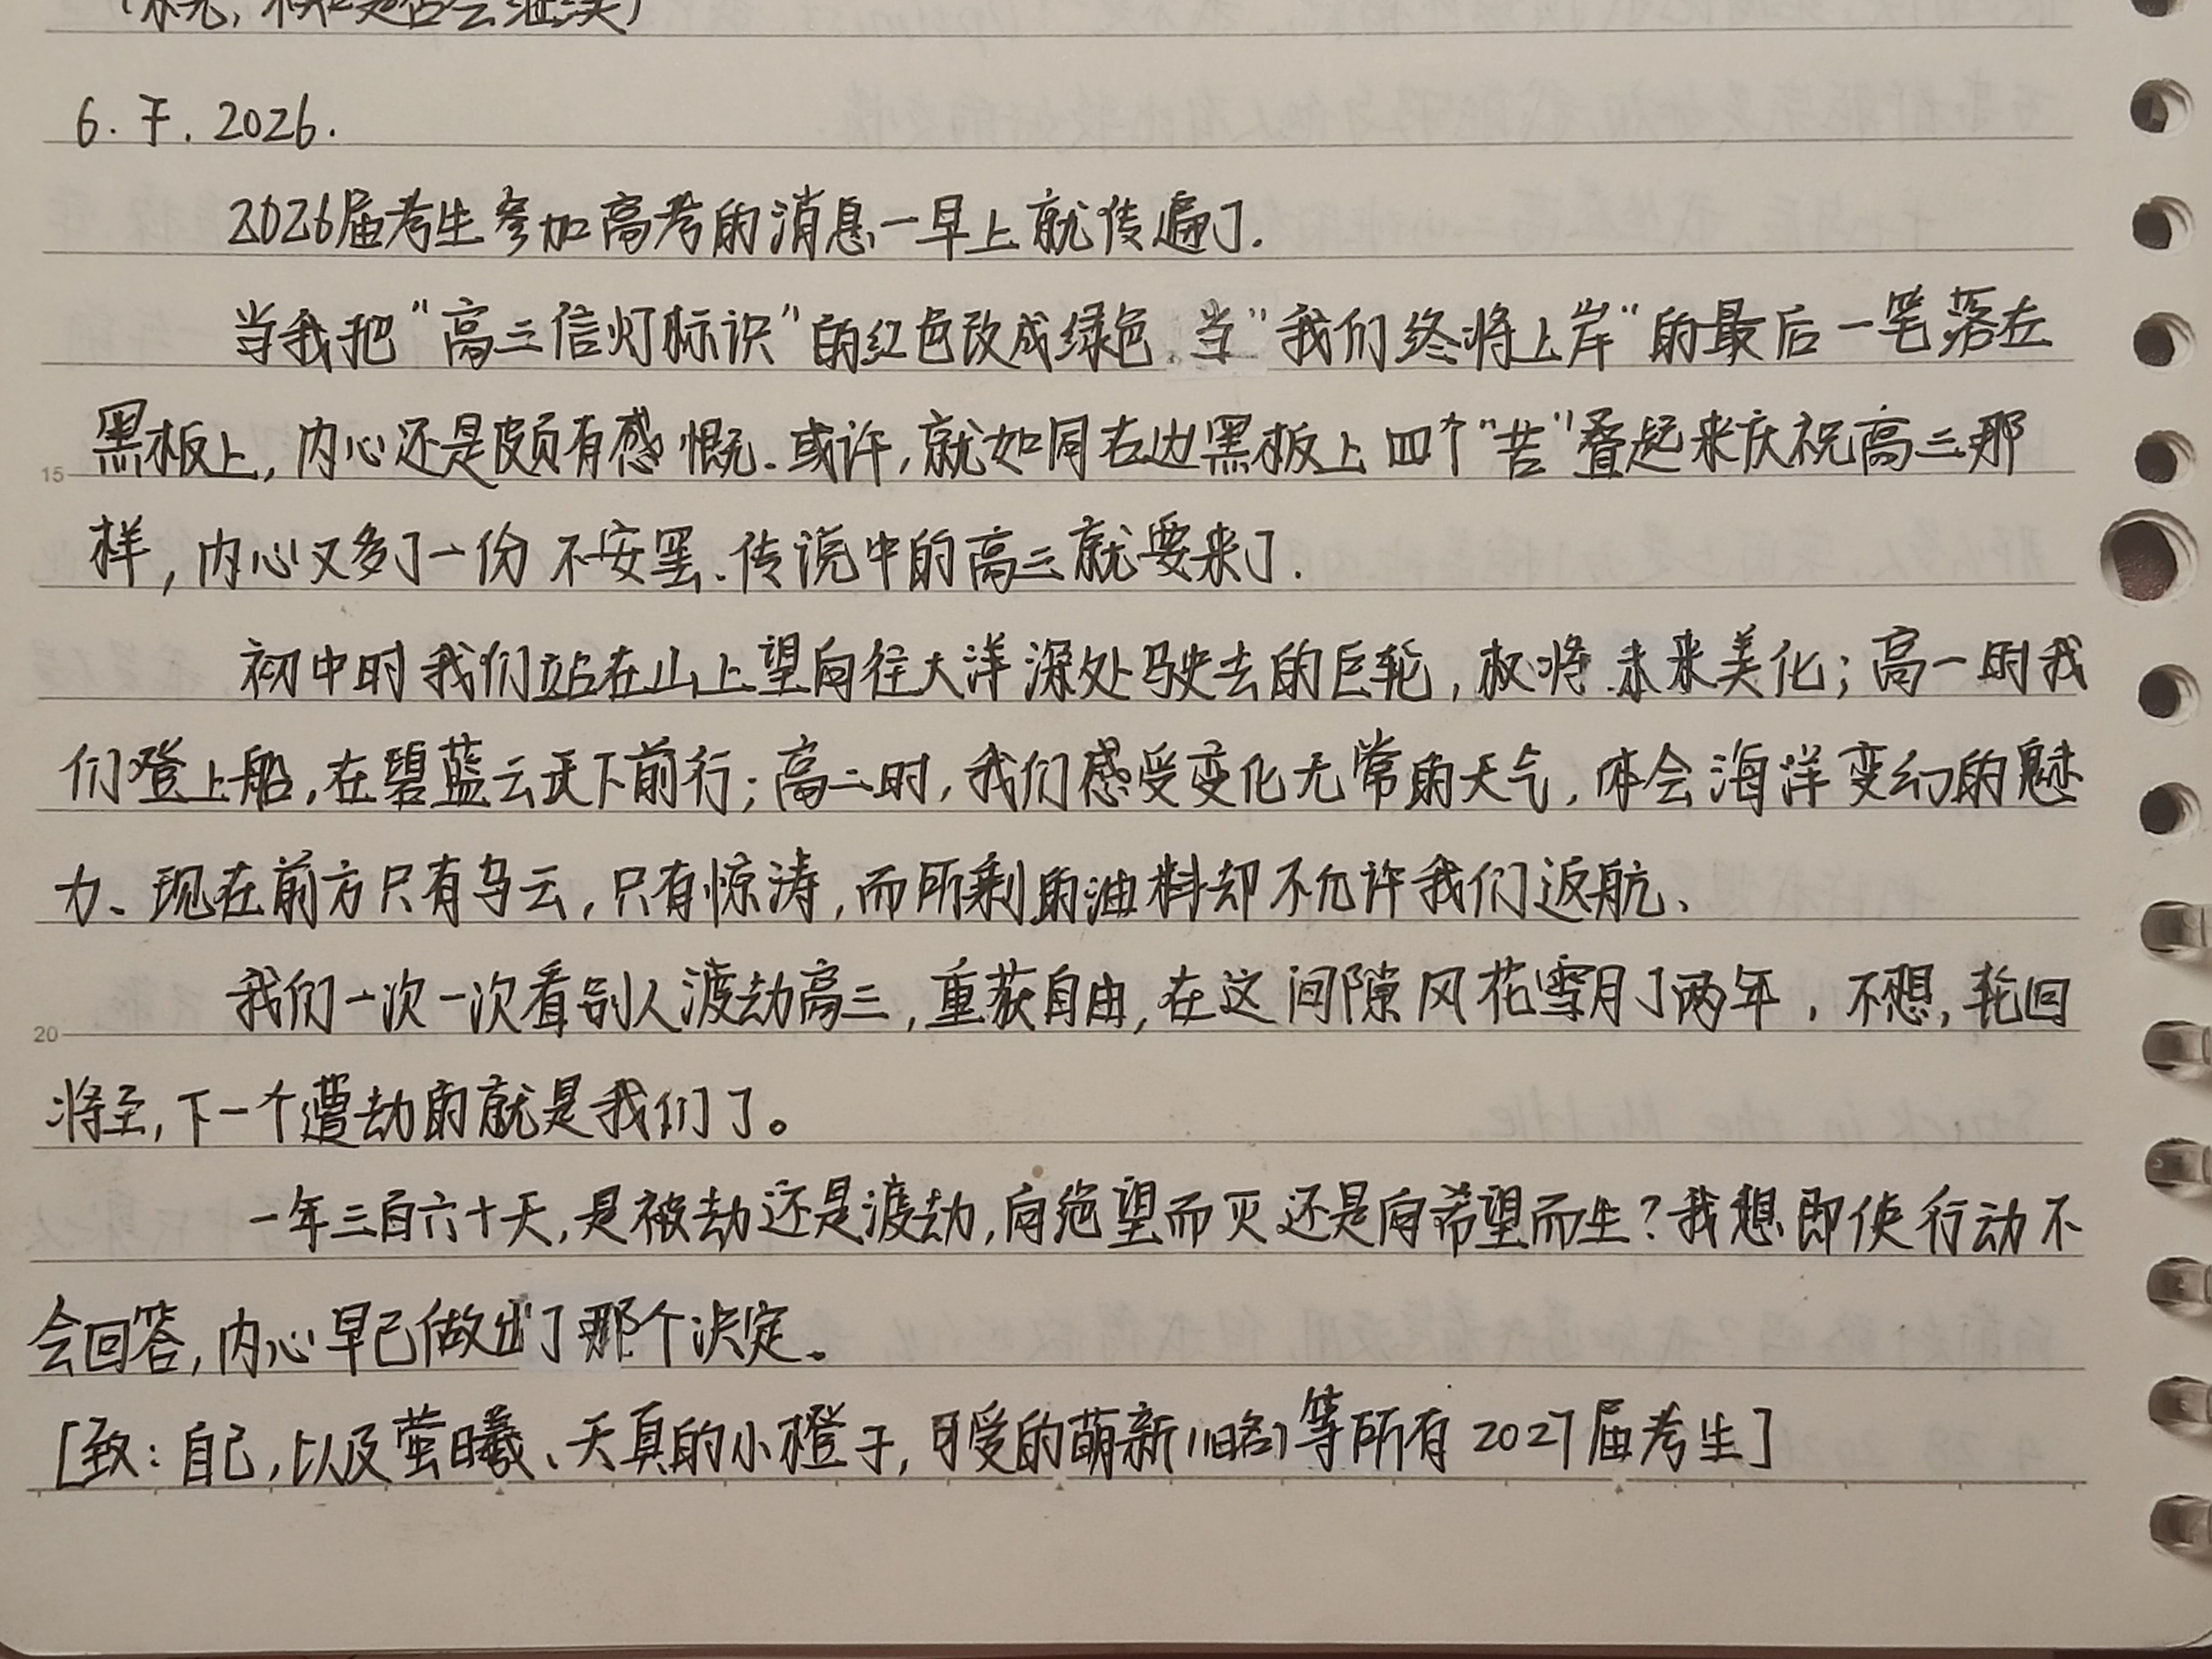 6. 7. 2026.
2026届考生参加高考的消息一早上就传遍了.
当我把“高三信灯标识”的红色改成绿色.当“我们终将上岸”的最后一笔落在
黑板上,内心还是颇有感慨.或许,就如同右边黑板上四个“苦”叠起来庆祝高三那
样,内心又多了一份不安罢.传说中的高三就要来了.
初中时我们站在山上望向往大洋深处驶去的巨轮,权将未来美化;高一时我
们登上船,在碧蓝云天下前行;高二时,我们感受变化无常的天气,体会海洋变幻的魅
力、现在前方只有乌云,只有惊涛,而所剩的油料却不允许我们返航、
我们一次一次看别人渡劫高三,重获自由,在这间隙风花雪月了两年,不想,轮回
将至,下一个遭劫的就是我们了。
一年三百六十天,是被劫还是渡劫,向绝望而灭还是向希望而生?我想即使行动不
会回答,内心早已做出了那个决定。
[致:自己,以及萤曦、天真的小橙子,可爱的萌新(旧略)等所有2027届考生]
15
20